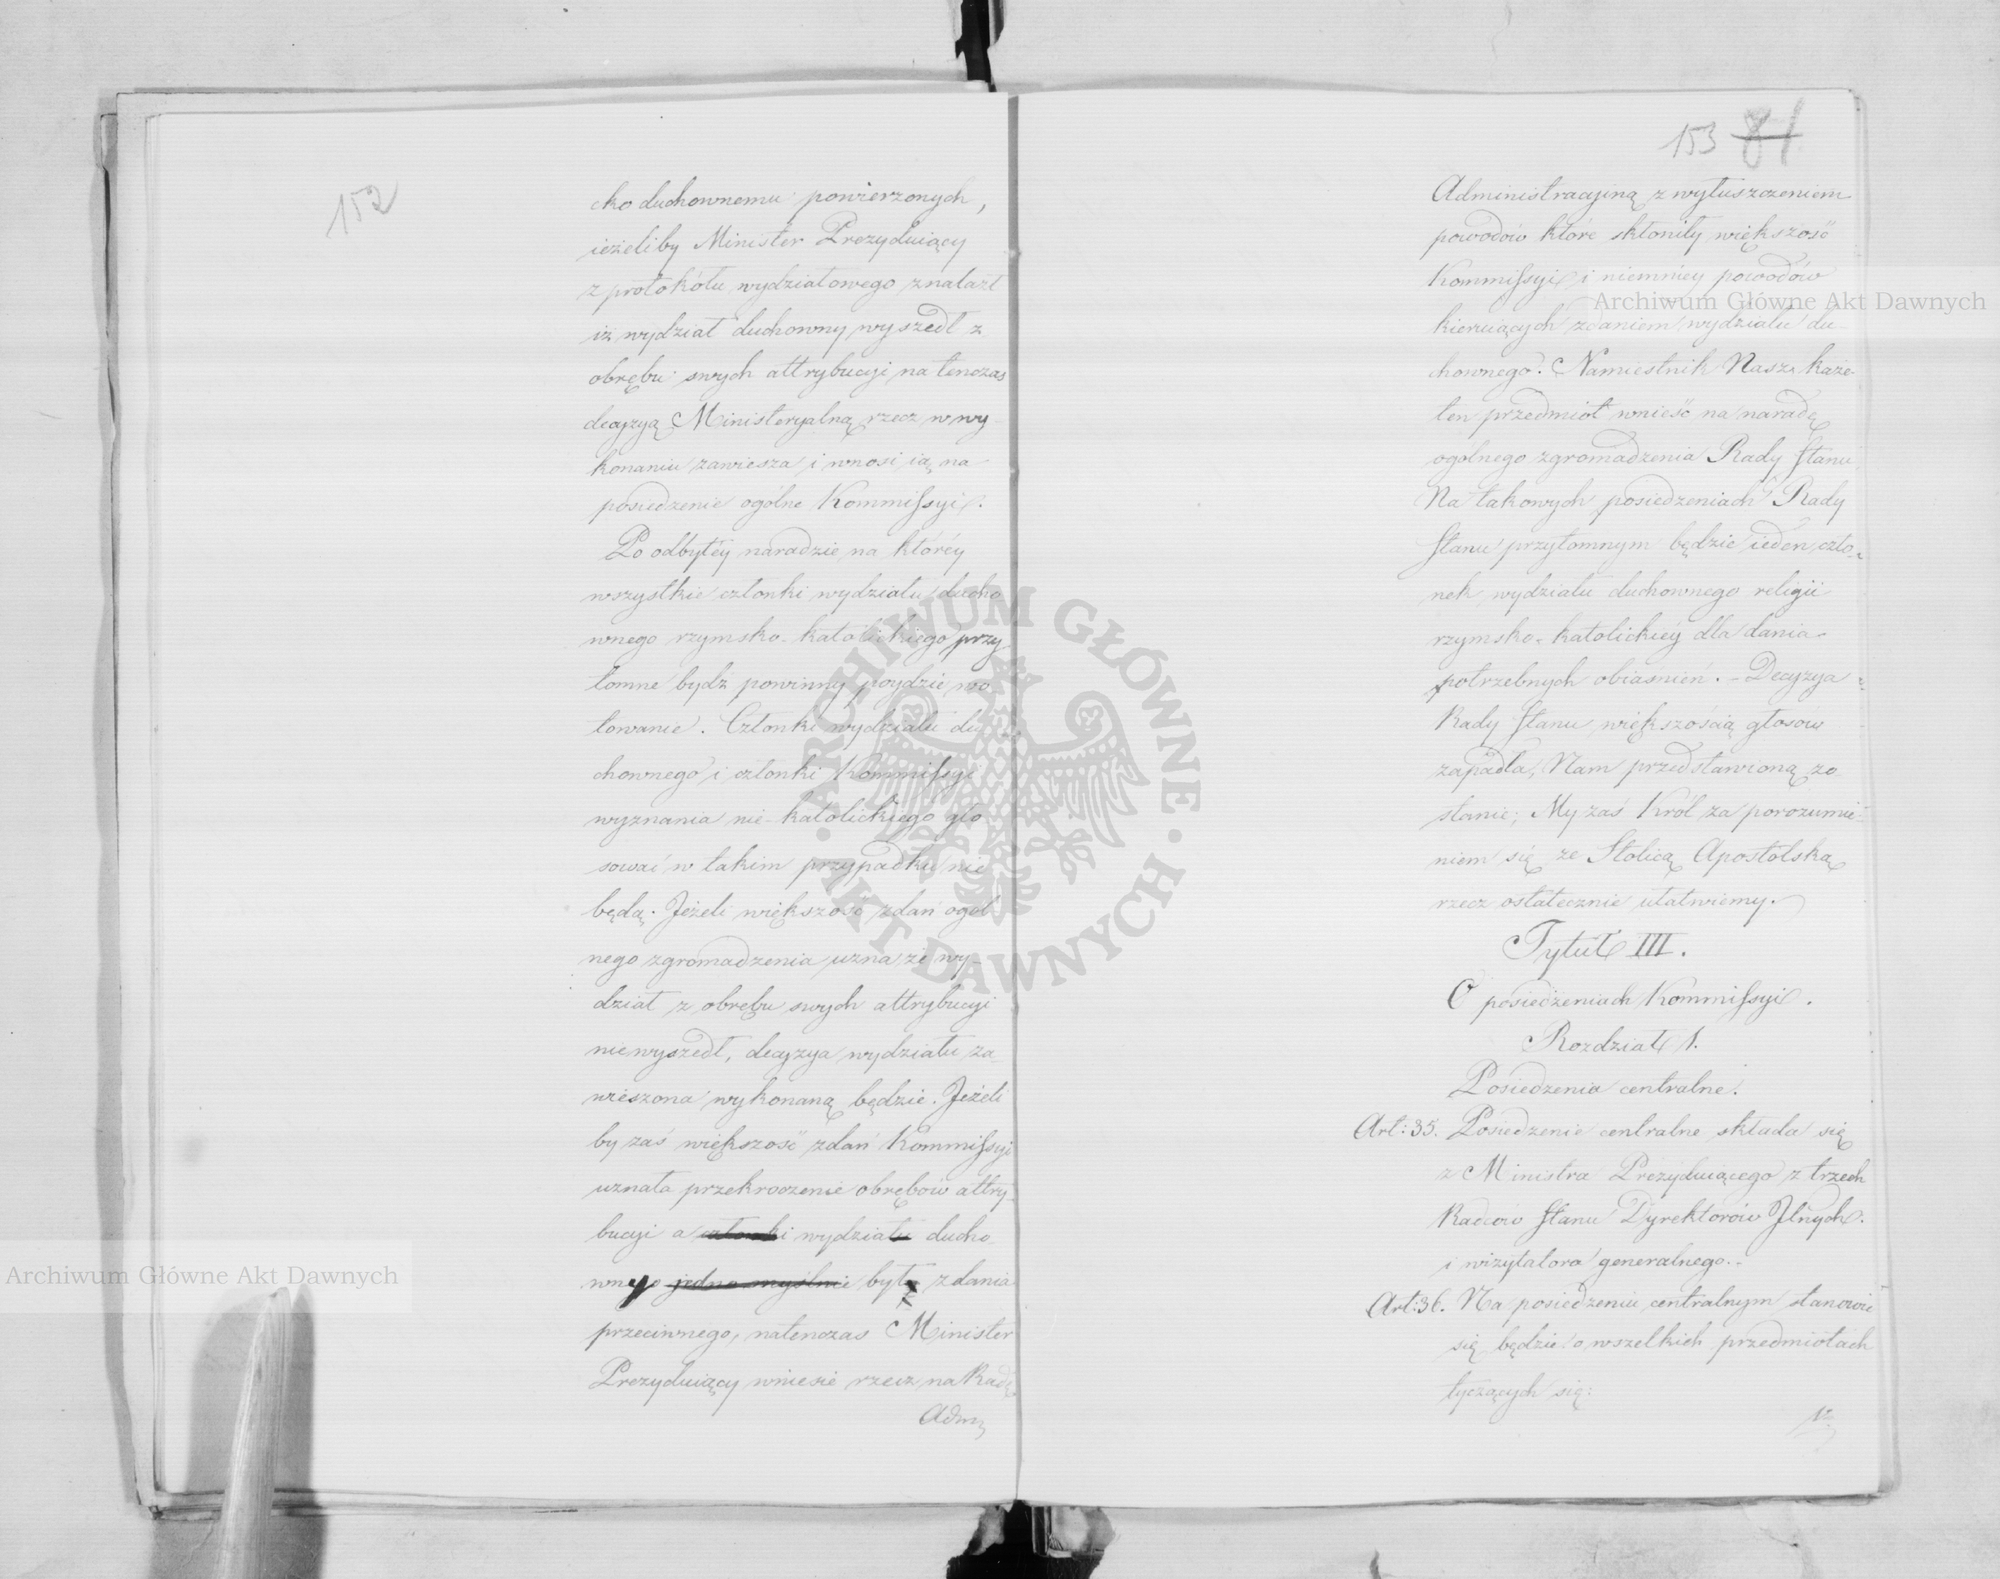 152
cko duchownemu powierzonych,
ieżeliby Minister Prezyduiący
z protokółu wydziałowego znalazł
iż wydział duchowny wyszedł z
obrębu swych attrybucyi na tenczas
decyzyą Ministeryalną rzecz w wy-
konaniu zawiesza i wnosi ią na
posiedzenie ogólne Kommissyi.
Po odbytéy naradzie na któréy
wszystkie członki wydziału ducho
wnego rzymsko-katolickiego przy
tomne bydź powinny poydzie wo
towanie. Członki wydziału du
chownego i członki Kommissyi
wyznania nie-katolickiego gło
sować w takim przypadku nie
będą. Jeżeli większość zdań ogól
nego zgromadzenia uzna że wy-
dział z obrębu swych attrybucyi
niewyszedł, decyzya wydziału za-
wieszona wykonaną będzie. Jeżeli
by zaś większość zdań Kommissyi
uznała przekroczenie obrębów attry-
bucyi a członki wydziału ducho-
wnego jedno myślnie był zdania
przeciwnego, natenczas Minister
Prezyduiący wniesie rzecz na Radę
Adm
153 81
Administracyiną z wyłuszczeniem
powodów które skłoniły większość
Kommissyi i niemniey powodów
kieruiących zdaniem wydziału du-
chownego. Namiestnik Nasz każe
ten przedmiot wnieść na naradę
ogólnego zgromadzenia Rady Stanu
Na takowych posiedzeniach Rady
Stanu przytomnym będzie ieden czło-
nek wydziału duchownego religii
rzymsko-katolickiéy dla dania
potrzebnych obiaśnień. - Decyzya
Rady Stanu większością głosów
zapadła, Nam przedstawioną zo-
stanie; My zaś Król za porozumie-
niem się ze Stolicą Apostolską
rzecz ostatecznie ułatwiemy.
Tytuł III.
O posiedzeniach Kommissyi.
Rozdział 1.
Posiedzenia centralne.
Art: 35. Posiedzenie centralne składa się
z Ministra Prezyduiącego z trzech
Radców Stanu Dyrektorów Jlnych
i wizytatora generalnego.
Art: 36. Na posiedzeniu centralnym stanowić
się będzie o wszelkich przedmiotach
tyczących się:
Archiwum Główne Akt Dawnych
Archiwum Główne Akt Dawnych
ARCHIWUM GŁÓWNE
AKT DAWNYCH